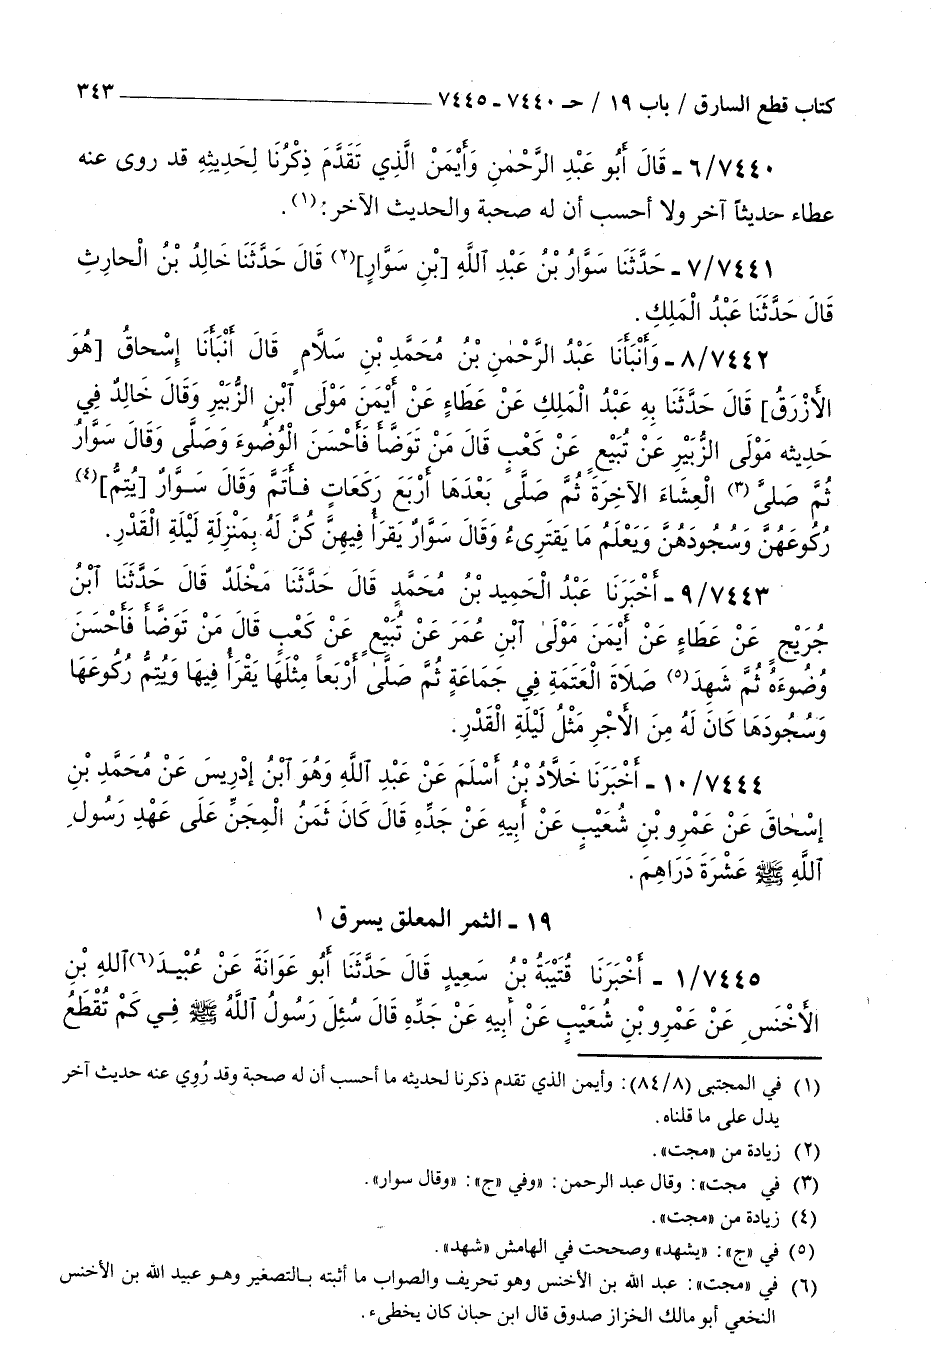 كتاب قطع السارق / باب ١٩ / حـ ٧٤٤٠ - ٧٤٤٥ ٣٤٣
٦/٧٤٤٠ - قَالَ أَبُو عَبْدِ الرَّحْمٰنِ وَأَيْمَنْ الَّذِي تَقَدَّمَ ذِكْرُنَا لِحَدِيثِهِ قد روى عنه
عطاء حديثاً آخر ولا أحسب أن له صحبة والحديث الآخر:(١).
٧/٧٤٤١ - حَدَّثَنَا سَوَّارُ بْنُ عَبْدِ ٱللَّهِ [بْنِ سَوَّارٍ](٢) قَالَ حَدَّثَنَا خَالِدُ بْنُ الْحارِثِ
قَالَ حَدَّثَنَا عَبْدُ الْمَلِكِ.
٨/٧٤٤٢ - وَأَنْبَأَنَا عَبْدُ الرَّحْمٰنِ بْنُ مُحَمَّدِ بْنِ سَلَامٍ قَالَ أَنْبَأَنَا إِسْحاقُ [هُوَ
الأَزْرَقُ] قَالَ حَدَّثَنَا بِهِ عَبْدُ الْمَلِكِ عَنْ عَطَاءٍ عَنْ أَيْمَنَ مَوْلَى ٱبْنِ الزُّبَيْرِ وَقَالَ خَالِدٌ فِي
حَدِيثه مَوْلَى الزُّبَيْرِ عَنْ تُبَيْعٍ عَنْ كَعْبٍ قَالَ مَنْ تَوَضَّأَ فَأَحْسَنَ الْوُضُوءَ وَصَلَّى وَقَالَ سَوَّارُ
ثُمَّ صَلىَّ(٣) الْعِشَاءَ الآخِرَةَ ثُمَّ صَلَّى بَعْدَهَا أَرْبَعَ رَكَعَاتٍ فَأَتَمَّ وَقَالَ سَوَّارُ [يُتِمُّ](٤)
رُكُوعَهُنَّ وَسُجُودَهُنَّ وَيَعْلَمُ مَا يَقْتَرِىءُ وَقَالَ سَوَّارُ يَقرَأُ فِيهِنَّ كُنَّ لَهُ بِمَنْزِلَةِ لَيْلَةِ الْقَدْرِ.
٩/٧٤٤٣ - أَخْبَرَنَا عَبْدُ الْحَمِيدِ بْنُ مُحَمَّدٍ قَالَ حَدَّثَنَا مَخْلَدٌ قَالَ حَدَّثَنَا ٱبْنُ
جُرَيْجٍ عَنْ عَطَاءٍ عَنْ أَيْمَنَ مَوْلَى ٱبْنِ عُمَرَ عَنْ تُبَيْعٍ عَنْ كَعْبٍ قَالَ مَنْ تَوَضَّأَ فَأَحْسَنَ
وُضُوءَهُ ثُمَّ شَهِدَ(٥) صَلَاةَ الْعَتَمَةِ فِي جَمَاعَةٍ ثُمَّ صَلَّى أَرْبَعاً مِثْلَهَا يَقْرَأُ فِيهَا وَيُتِمُّ رُكُوعَهَا
وَسُجُودَهَا كَانَ لَهُ مِنَ الأَجْرِ مَثْلُ لَيْلَةِ الْقَدْرِ.
١٠/٧٤٤٤ - أَخْبَرَنَا خَلاَّدُ بْنُ أَسْلَمَ عَنْ عَبْدِ ٱللَّهِ وَهُوَ ٱبْنُ إِدْرِيسَ عَنْ مُحَمَّدِ بْنِ
إِسْحٰاقَ عَنْ عَمْرِو بْنِ شُعَيْبٍ عَنْ أَبِيهِ عَنْ جَدِّهِ قَالَ كَانَ ثَمَنُ الْمِجَنِّ عَلَى عَهْدِ رَسُولِ
ٱللَّهِ ﷺ عَشْرَةَ دَرَاهِمَ.
١٩ - الثمر المعلق يسرق ١
١/٧٤٤٥ - أَخْبَرَنَا قُتَيْبَةُ بْنُ سَعِيدٍ قَالَ حَدَّثَنَا أَبُو عَوَانَةَ عَنْ عُبَيْدَ(٦)ٱللهِ بْنِ
الأَخْنَسِ عَنْ عَمْرِو بْنِ شُعَيْبٍ عَنْ أَبِيهِ عَنْ جَدِّهِ قَالَ سُئِلَ رَسُولُ ٱللَّهُ ﷺ فِي كَمْ تُقْطَعُ
(١) في المجتبى (٨٤/٨): وأيمن الذي تقدم ذكرنا لحديثه ما أحسب أن له صحبة وقد رُوِي عنه حديث آخر
يدل على ما قلناه.
(٢) زيادة من «مجت».
(٣) في مجت»: وقال عبد الرحمن: «وفي «ج»: «وقال سوار».
(٤) زيادة من «مجت».
(٥) في «ج»: «يشهد» وصححت في الهامش «شهد».
(٦) في «مجت»: عبد الله بن الأخنس وهو تحريف والصواب ما أثبته بالتصغير وهو عبيد الله بن الأخنس
النخعي أبو مالك الخزاز صدوق قال ابن حبان كان يخطىء.